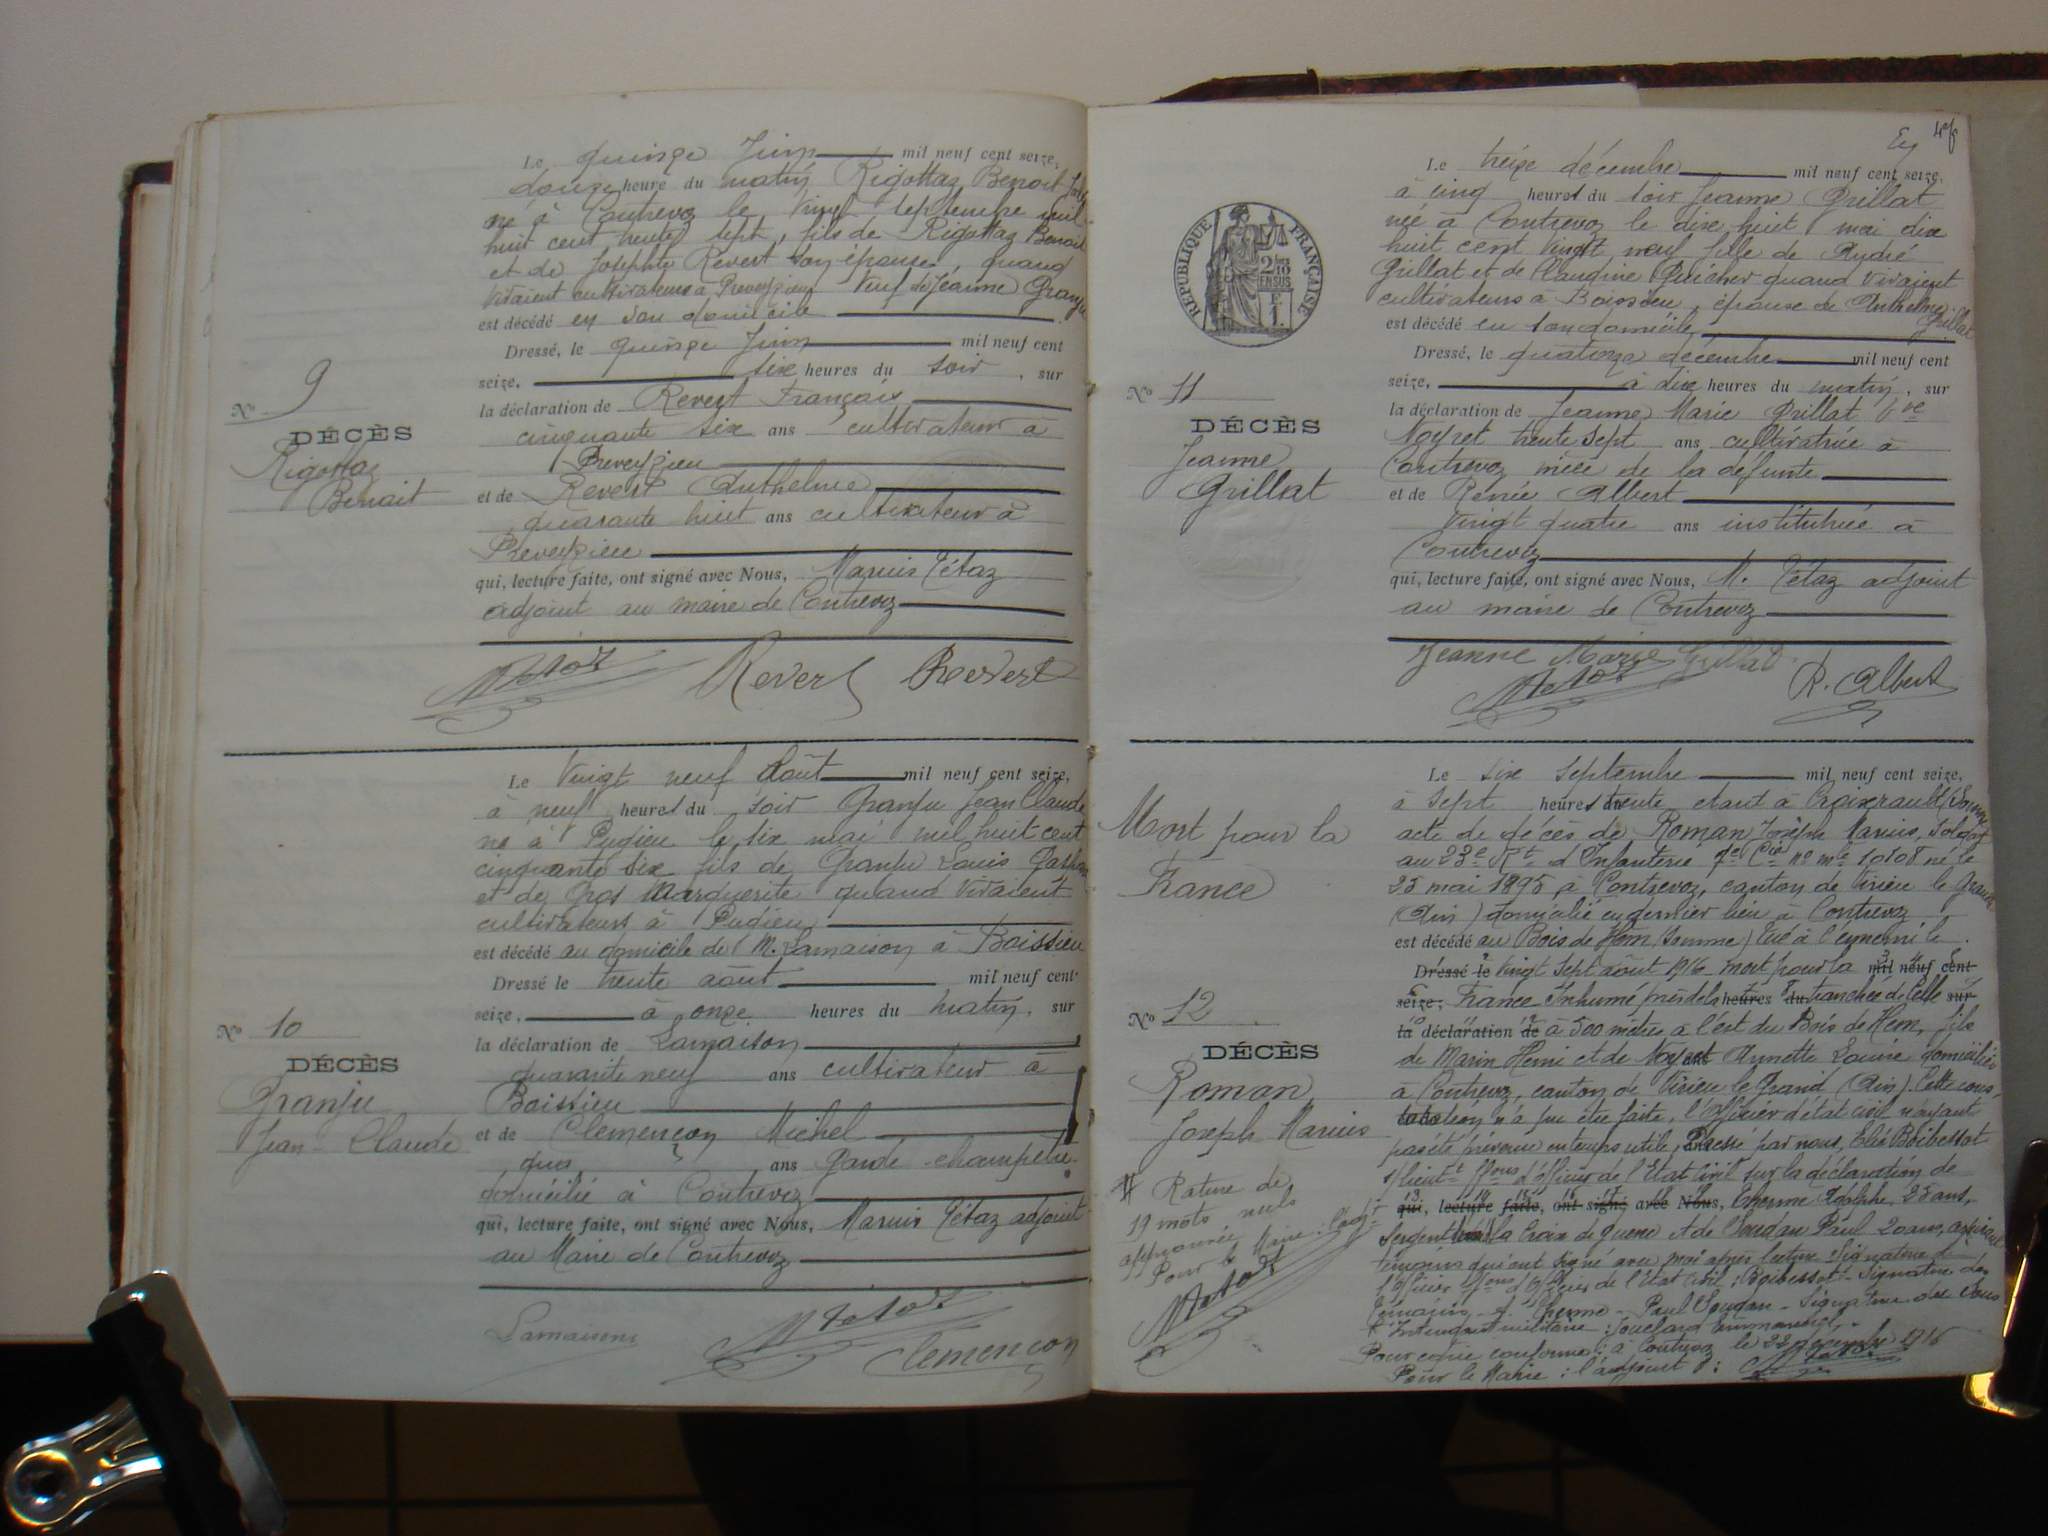 Le quinze Juin mil neuf cent seize,
heure du matin Rigottaz Benoit
né à Contrevoz le vingt septembre mil
huit cent trente sept, fils de Rigottaz Benoit
et de Josephte Revert son épouse, quand
vivaient cultivateurs à Preveyzieu veuf de Jeanne Granju
est décédé en son domicile
Dressé, le quinze Juin mil neuf cent
seize, six heures du soir, sur
la déclaration de Revert Français
cinquante six ans cultivateur à
Preveyzieu
et de Revert Anthelme
quarante huit ans cultivateur à
Preveyzieu
qui, lecture faite, ont signé avec Nous, Marius Tétaz
adjoint au maire de Contrevoz
No 9
DÉCÈS
Rigottaz
Benoit
M Tetaz Revert Revert
Le vingt neuf Août mil neuf cent seize,
à neuf heures du soir Granju Jean Claude
né à Pugieu le six mai mil huit cent
cinquante six fils de Granju Louis
et de Gros Marguerite quand vivaient
cultivateurs à Pugieu
est décédé au domicile de M. Lamaison à Boissieu
Dressé le trente août mil neuf cent
seize, à onze heures du matin, sur
la déclaration de Lamaison
quarante neuf ans cultivateur à
Boissieu
et de Clemençon Michel
ans garde-champêtre
domicilié à Contrevoz
qui, lecture faite, ont signé avec Nous, Marius Tétaz adjoint
au Maire de Contrevoz
No 10
DÉCÈS
Granju
Jean-Claude
Lamaison M Tetaz Clemençon
RÉPUBLIQUE FRANÇAISE
2/10
EN SUS
Le treize décembre mil neuf cent seize,
à cinq heures du soir Jeanne Grillat
née à Contrevoz le dix huit mai dix
huit cent vingt neuf fille de André
Grillat et de Claudine Quicher quand vivaient
cultivateurs à Boissieu, épouse de Anthelme Grillat
est décédé en son domicile
Dressé, le quatorze décembre mil neuf cent
seize, à dix heures du matin, sur
la déclaration de Jeanne Marie Grillat Vve
Noyret trente sept ans cultivatrice à
Contrevoz nièce de la défunte
et de Renée Albert
vingt quatre ans institutrice à
Contrevoz
qui, lecture faite, ont signé avec Nous, M. Tétaz adjoint
au maire de Contrevoz
No 11
DÉCÈS
Jeanne
Grillat
Jeanne Marie Grillat
M Tetaz R. Albert
Le six septembre mil neuf cent seize,
à sept heures trente etant à Croixrault (Somme
acte de décès de Roman Joseph Marius, soldat
au 23e Rt d'Infanterie 7e Cie no mle 10108 né le
25 mai 1895 à Contrevoz, canton de Virieu le Grand
(Ain) domicilié en dernier lieu à Contrevoz
est décédé au Bois de Hem (Somme) tué à l'ennemi le
Dressé le vingt sept août 1916 mort pour la mil neuf cent
seize, France Inhumé près de la heures du tranchée de Celle sur
la déclaration de à 500 mètres à l'est du Bois de Hem, fils
de Marin Henri et de Noyret Annette Louise domiciliés
à Contrevoz, canton de Virieu le Grand (Ain). Cette cons-
tatation n'a pu être faite, l'Officier d'état civil n'ayant
pas été prévenu en temps utile, Dressé par nous, Elie Boibessot
s/lieutt ffons d'officier de l'Etat civil sur la déclaration de
qui, lecture faite, ont signé avec Nous, Cherme Adolphe 25 ans,
sergent la Croix de guerre et de Soudan Paul 20 ans, aspirant
témoins qui ont signé avec moi après lecture. Signature de
l'officier ffons d'officier de l'Etat civil: Boibessot - Signature des
témoins A. Cherme - Paul Soudan - Signature du Sous
Intendant militaire: Jouclard Emmanuel.
Pour copie conforme: à Contrevoz le 22 décembre 1916
Pour le Maire: l'adjoint: M Tetaz
Mort pour la
France
No 12
DÉCÈS
Roman
Joseph Marius
Rature de
19 mots nuls
approuvée
Pour le Maire: l'adjt
M Tetaz